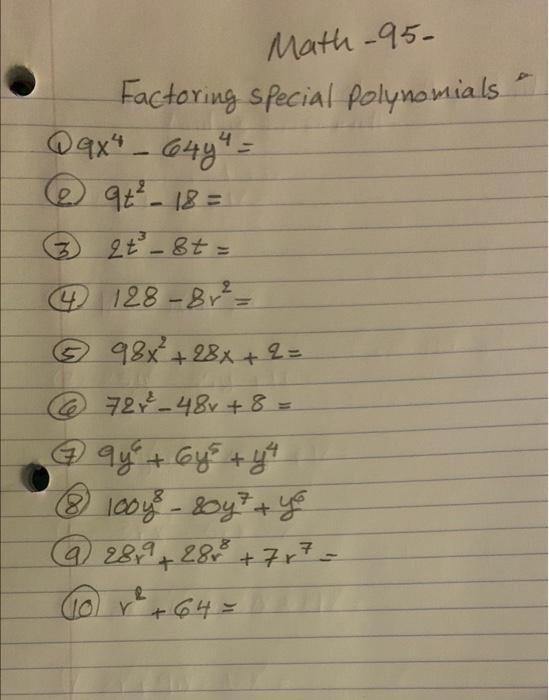 Math -95-
Factoring special polynomials
① 9x⁴ - 64y⁴ =
② 9t² - 18 =
③ 2t³ - 8t =
④ 128 - 8r² =
⑤ 98x² + 28x + 2 =
⑥ 72r² - 48r + 8 =
⑦ 9y⁶ + 6y⁵ + y⁴
⑧ 100y⁸ - 80y⁷ + y⁶
⑨ 28r⁹ + 28r⁸ + 7r⁷ =
⑩ r² + 64 =